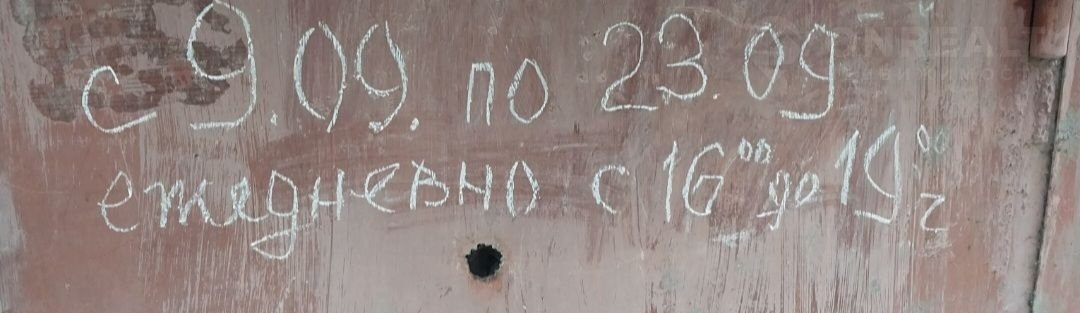 с 9.09. по 23.09
ежедневно с 16⁰⁰ до 19⁰⁰ г